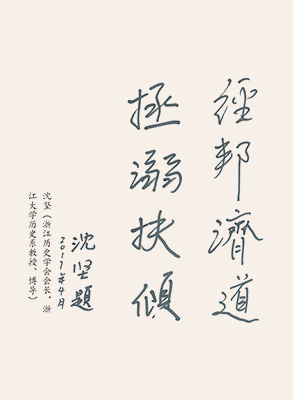 經邦濟道
拯溺扶傾
沈坚题
2017年4月
沈坚（浙江历史学会会长、浙
江大学历史系教授、博导）